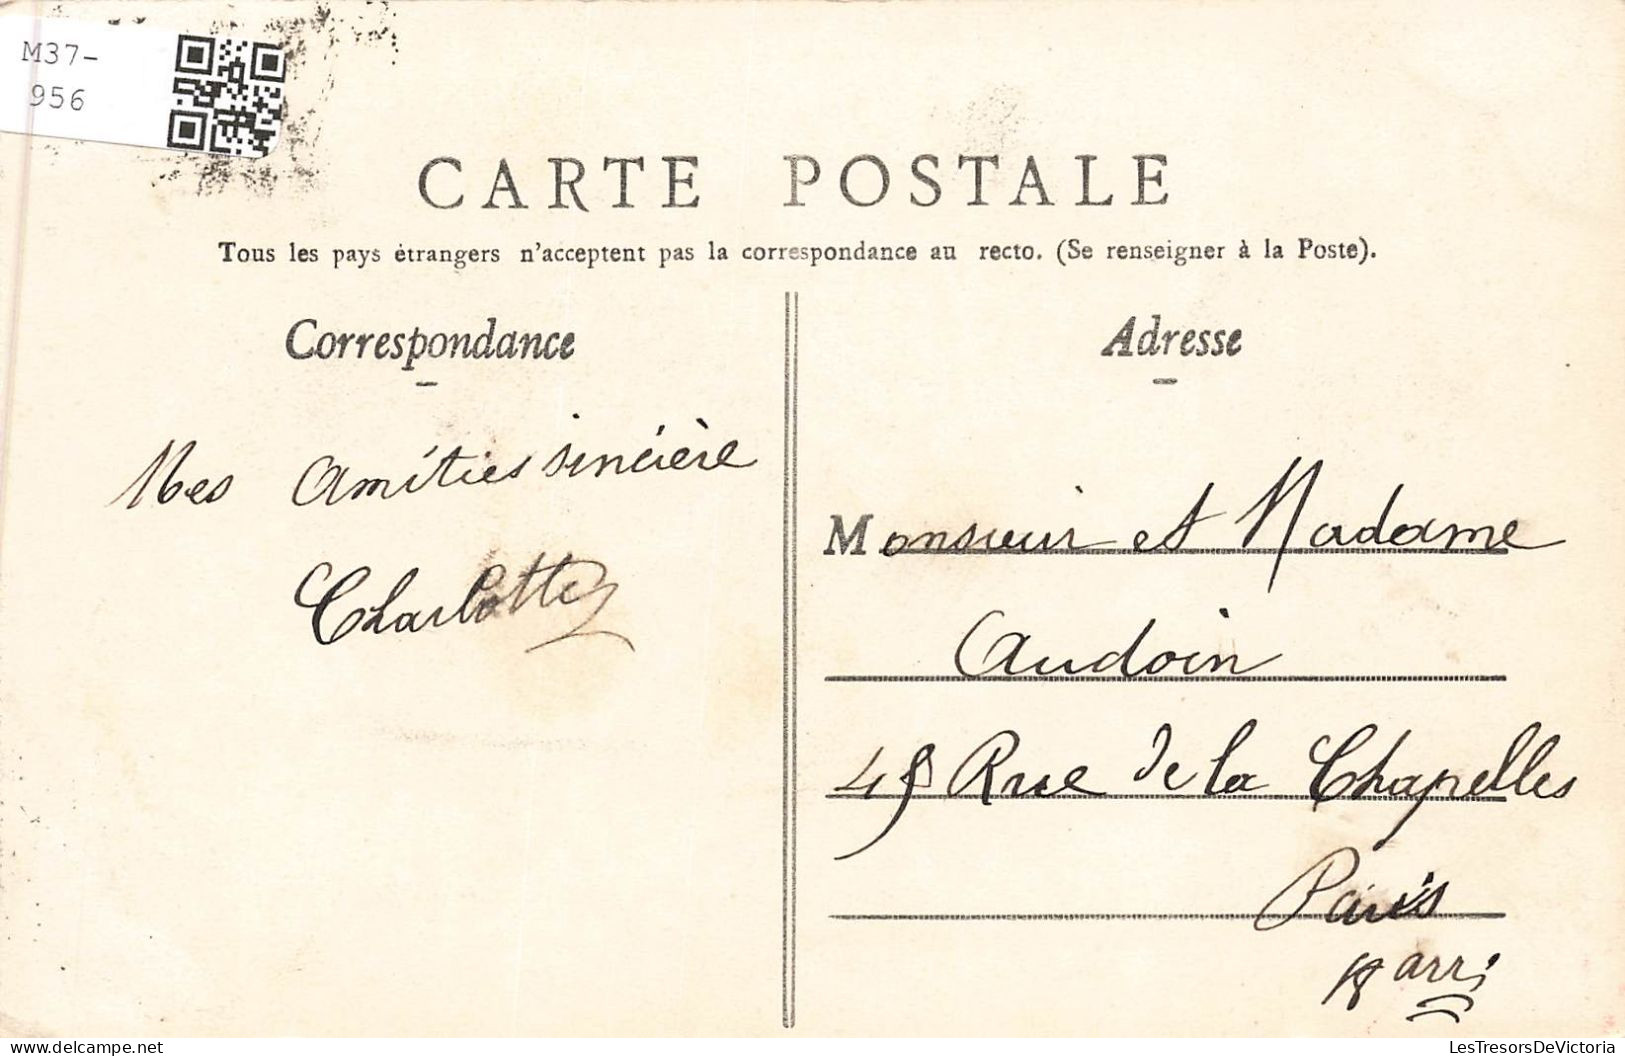 M37-
956
CARTE POSTALE
Tous les pays étrangers n'acceptent pas la correspondance au recto. (Se renseigner à la Poste).
Correspondance
Mes Amitiés sincière
Charlotte
Adresse
Monsieur et Madame
Audoin
45 Rue de la Chapelles
Paris
18 arri
delcampe.net
LesTresorsDeVictoria